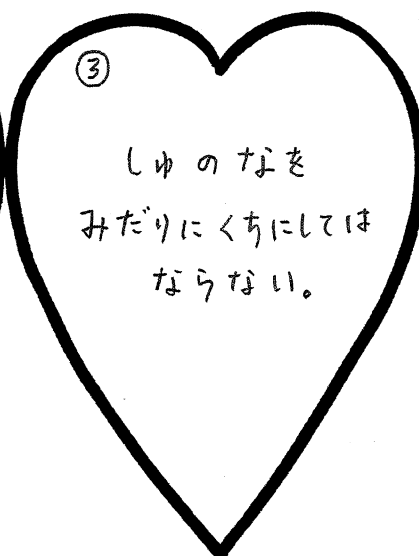 ③
しゅのなを
みだりにくちにしては
ならない。